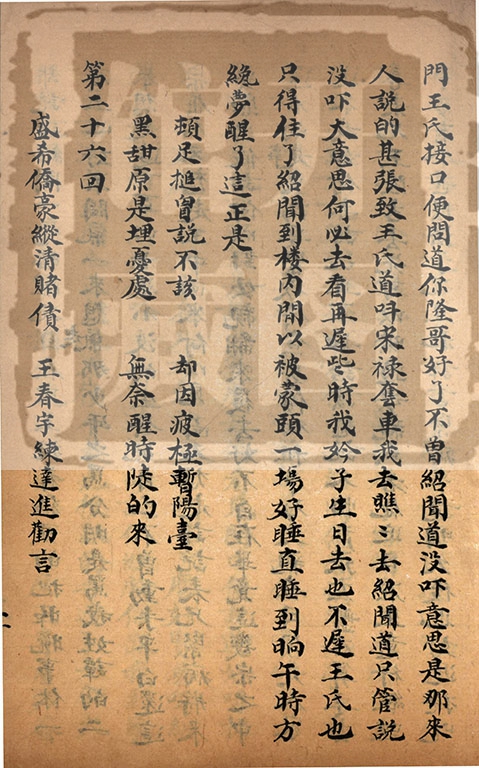 門王氏接口便問道你隆哥好了不曾紹聞道没吓意思是那來
人説的甚張致王氏道呌宋禄套車我去瞧〻去紹聞道只管説
没吓大意思何必去看再遲些時我妗子生日去也不遲王氏也
只得住了紹聞到楼内間以被蒙頭一場好睡直睡到晌午時方
纔夢醒了這正是
頓足搥胷説不該 却因疲極暫陽臺
黑甜原是埋憂處 無奈醒時陡的來
第二十六回
盛希僑豪縱清賭債 王春宇練達進勸言